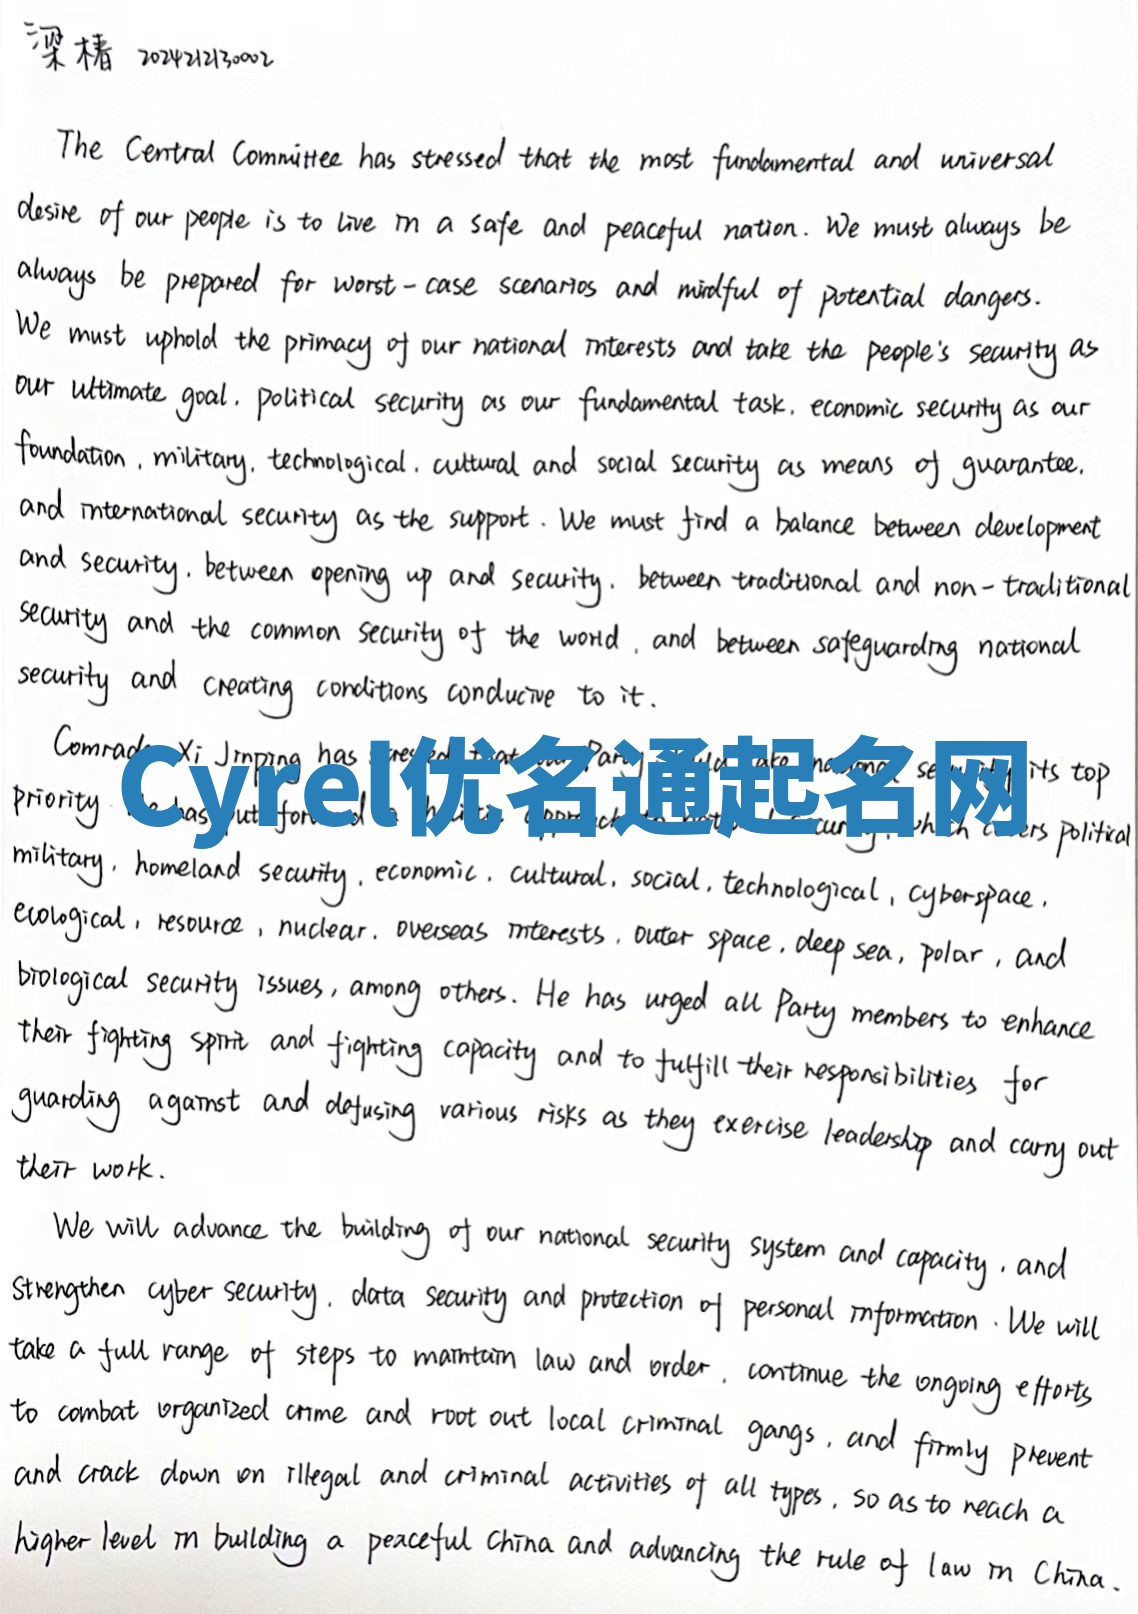 梁楮 2024212130002
The Central Committee has stressed that the most fundamental and universal
desire of our people is to live in a safe and peaceful nation. We must always be
always be prepared for worst-case scenarios and mindful of potential dangers.
We must uphold the primacy of our national interests and take the people's security as
our ultimate goal, political security as our fundamental task, economic security as our
foundation, military, technological, cultural and social security as means of guarantee,
and international security as the support. We must find a balance between development
and security, between opening up and security, between traditional and non-traditional
security and the common security of the world, and between safeguarding national
security and creating conditions conducive to it.
Comrade Xi Jinping has stressed that our Party should take national security its top
Cyrel优名通起名网
priority. He has put forward a holistic approach to national security, which covers political
military, homeland security, economic, cultural, social, technological, cyberspace,
ecological, resource, nuclear, overseas interests, outer space, deep sea, polar, and
biological security issues, among others. He has urged all Party members to enhance
their fighting spirit and fighting capacity and to fulfill their responsibilities for
guarding against and defusing various risks as they exercise leadership and carry out
their work.
We will advance the building of our national security system and capacity, and
strengthen cyber security, data security and protection of personal information. We will
take a full range of steps to maintain law and order, continue the ongoing efforts
to combat organized crime and root out local criminal gangs, and firmly prevent
and crack down on illegal and criminal activities of all types, so as to reach a
higher level in building a peaceful China and advancing the rule of law in China.